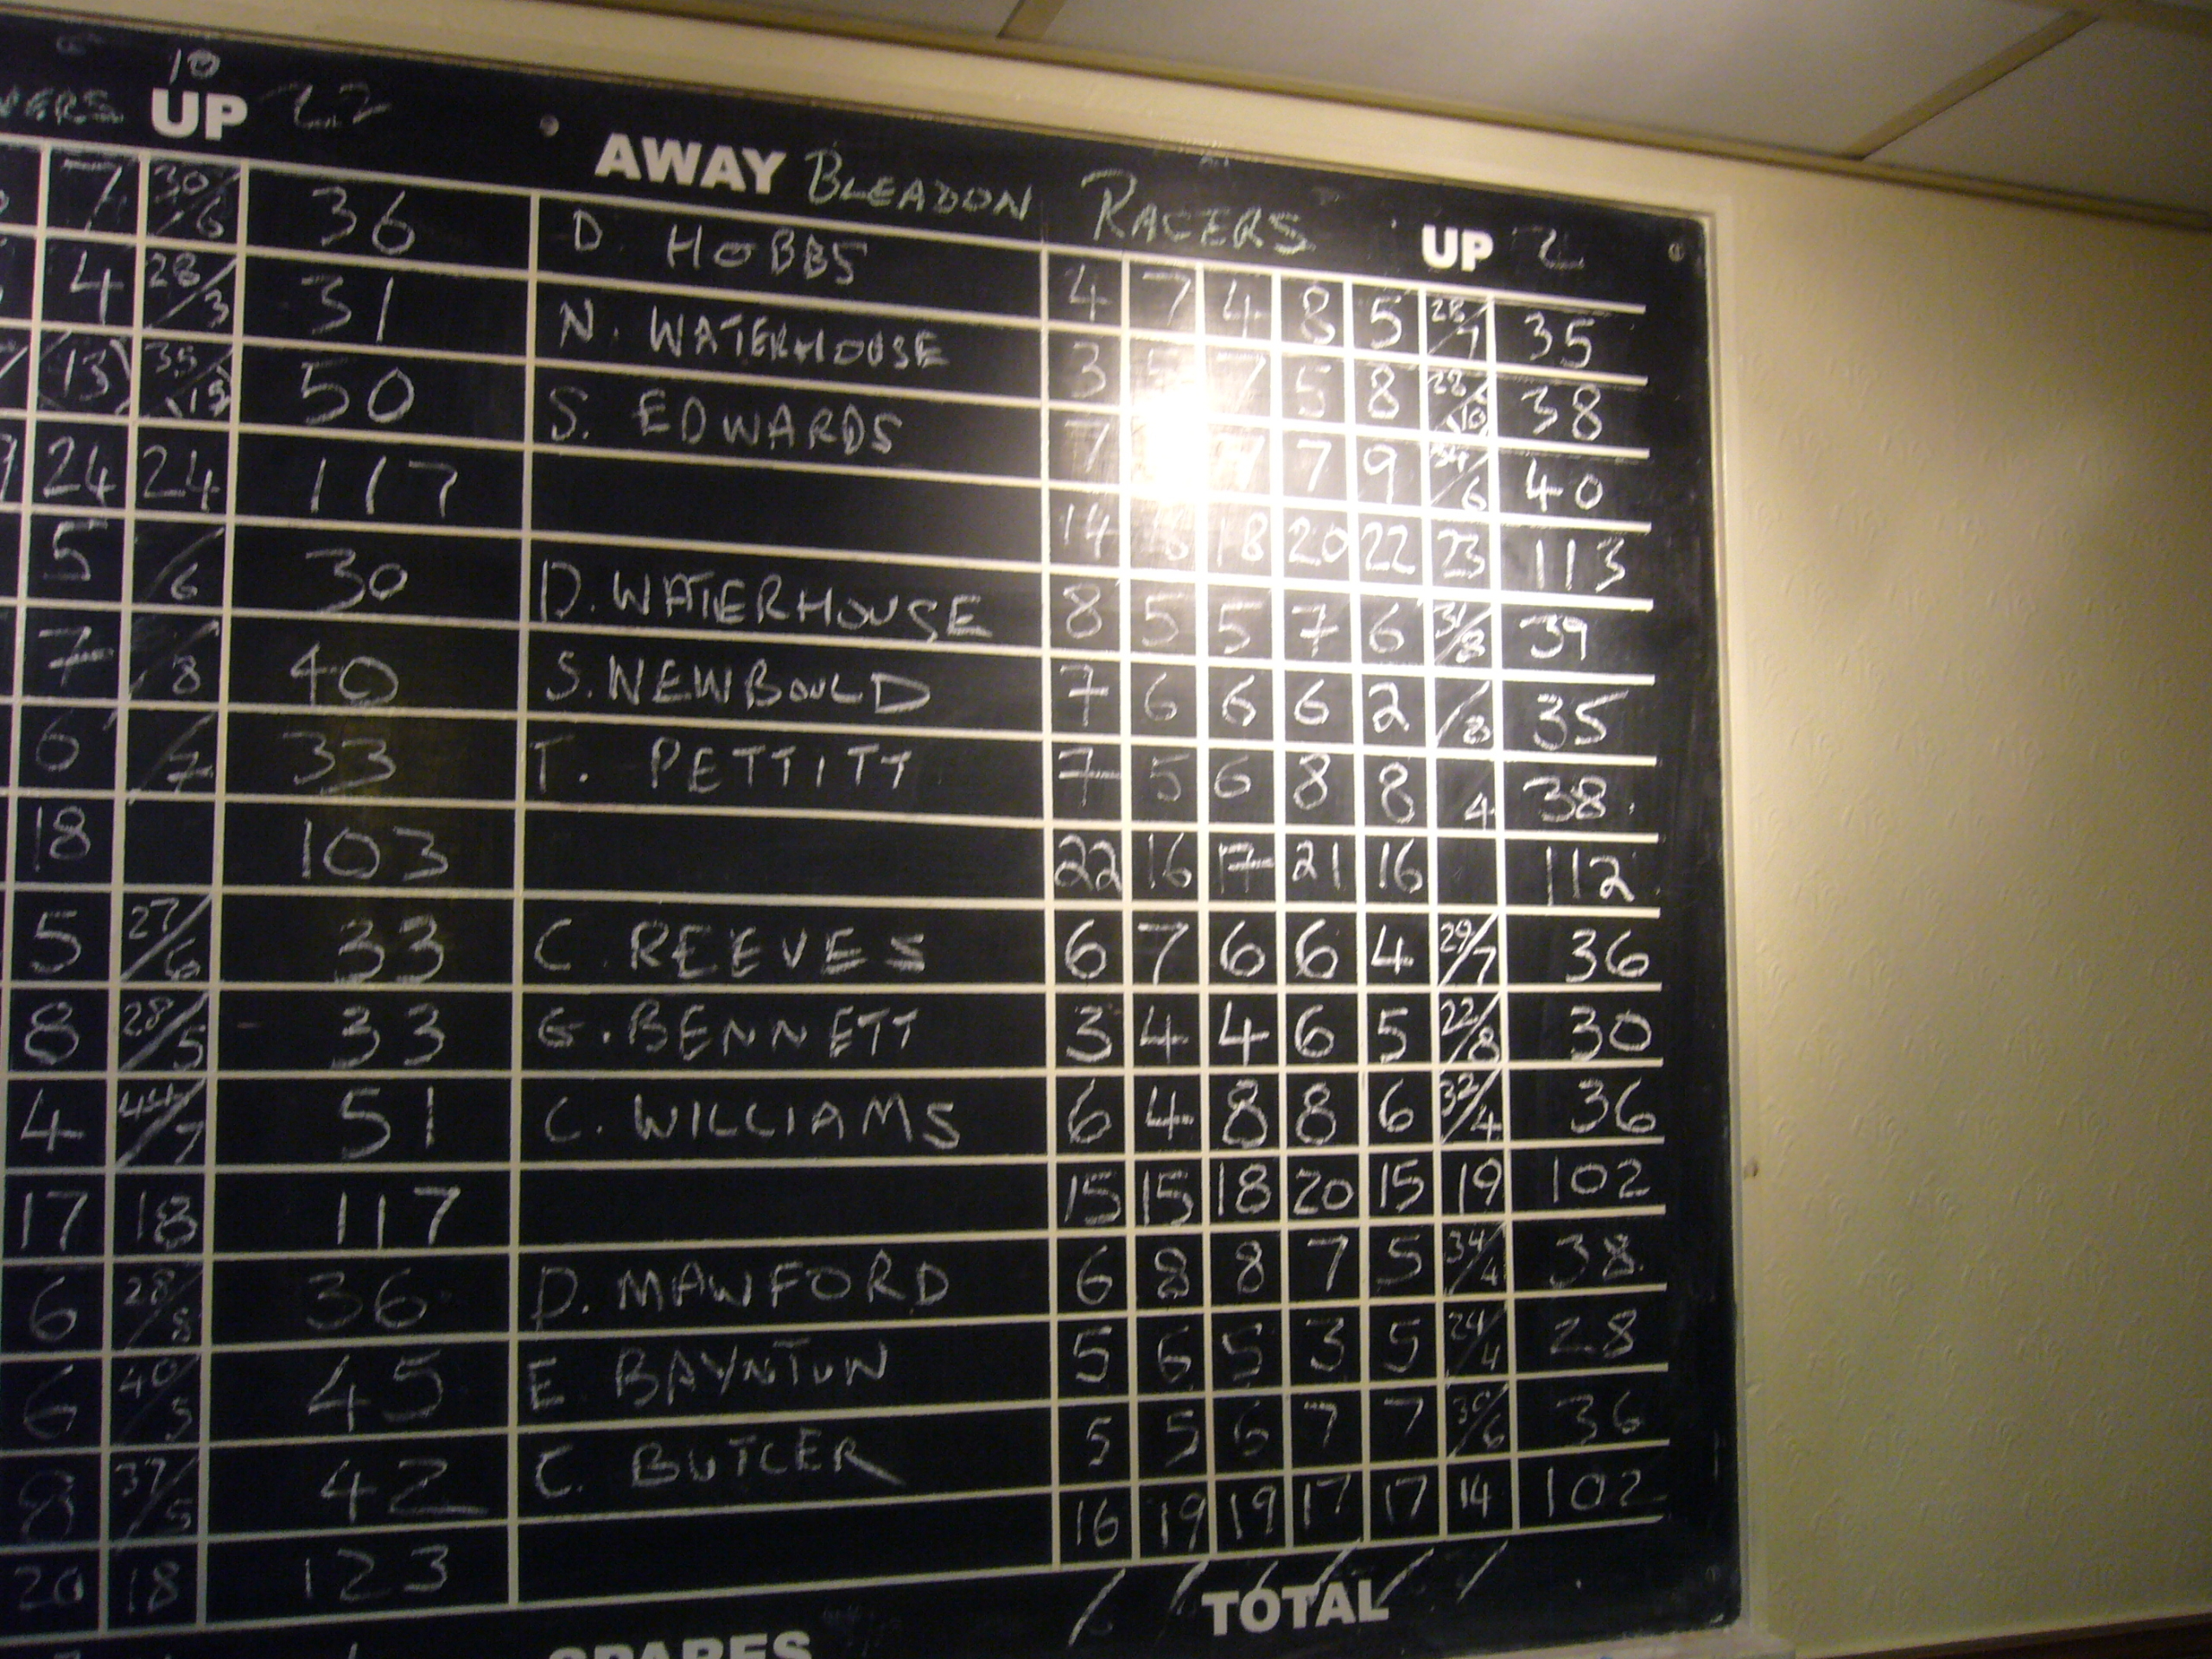 10
VERS UP 22 AWAY BLEADON RACERS UP 2
7 30/6 36 D. HOBBS 4 7 4 8 5 28/7 35
4 28/3 31 N. WATERHOUSE 3 5 7 5 8 28/10 38
13 35/15 50 S. EDWARDS 7 7 7 9 34/6 40
24 24 117 14 18 20 22 23 113
5 /6 30 D. WATERHOUSE 8 5 5 7 6 31/8 39
7 /8 40 S. NEWBOULD 7 6 6 6 2 /8 35
6 /7 33 T. PETTITT 7 5 6 8 8 4 38
18 103 22 16 17 21 16 112
5 27/6 33 C. REEVES 6 7 6 6 4 29/7 36
8 28/5 33 G. BENNETT 3 4 4 6 5 22/8 30
4 44/7 51 C. WILLIAMS 6 4 8 8 6 32/4 36
17 18 117 15 15 18 20 15 19 102
6 28/8 36 D. MAWFORD 6 8 8 7 5 34/4 38
6 40/5 45 E BAYNTUN 5 6 5 3 5 24/4 28
8 37/5 42 C. BUTLER 5 5 6 7 7 30/6 36
20 18 123 16 19 19 17 17 14 102
SPARES TOTAL